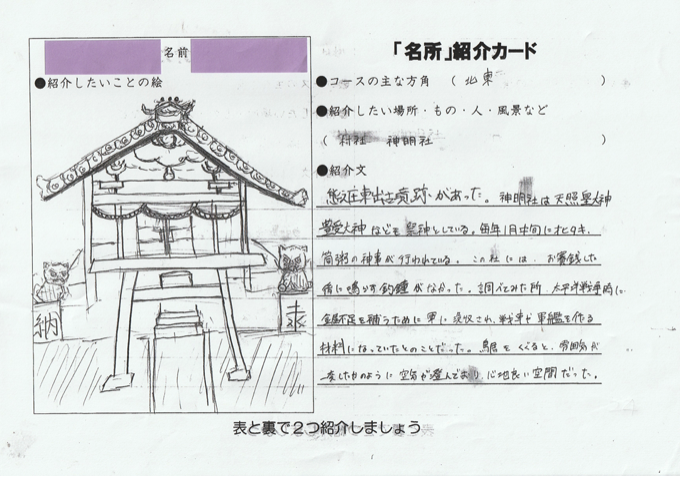 「名所」紹介カード
名前
●紹介したいことの絵
納
●コースの主な方角 ( 北東 )
●紹介したい場所・もの・人・風景など
( 神明社 )
●紹介文
があった。神明社は天照皇大神
豊受大神などを祭神としている。毎年1月中旬に
筒粥の神事が行われている。この社には、お賽銭した
後に鳴らす釣鐘がなかった。調べてみた所、太平洋戦争時に
金属不足を補うために軍に吸収され、戦車や軍艦を作る
材料になっていたとのことだった。鳥居をくぐると、雰囲気が
変したかのように空気が澄んでおり心地良い空間だった。
表と裏で2つ紹介しましょう